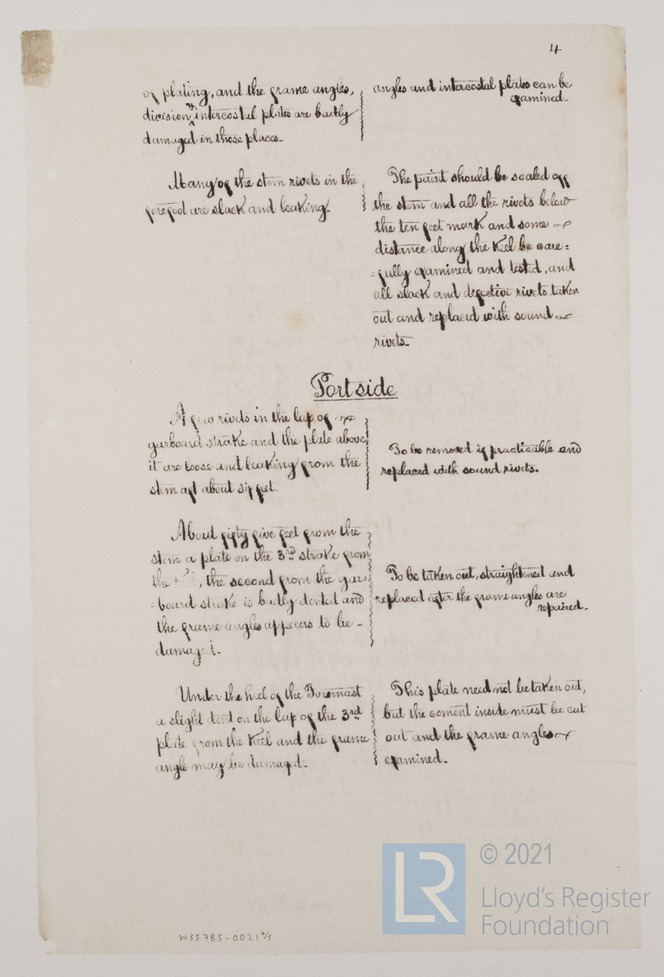 4
of plating, and the frame angles,
division & intercostal plates are badly
damaged in those places.
angles and intercostal plates can be
examined.
Many of the stem rivets in the
forefoot are slack and leaking.
The paint should be scaled off
the stem and all the rivets below
the ten feet mark and some
distance along the Keel be care=
=fully examined and tested, and
all slack and defective rivets taken
out and replaced with sound
rivets.
Port side
A few rivets in the lap of
garboard strake and the plate above
it are loose and leaking from the
stem aft about six feet.
To be removed if practicable and
replaced with sound rivets.
About fifty five feet from the
stem a plate on the 3rd strake from
the, the second from the gar=
=board strake is badly dented and
the frame angles appears to be
damaged.
To be taken out, straightened and
replaced after the frame angles are
repaired.
Under the heel of the Foremast
a slight dent on the lap of the 3rd
plate from the Keel and the frame
angle may be damaged.
This plate need not be taken out,
but the cement inside must be cut
out and the frame angles
examined.
W35785-0021 4/5
LR
© 2021
Lloyd's Register
Foundation